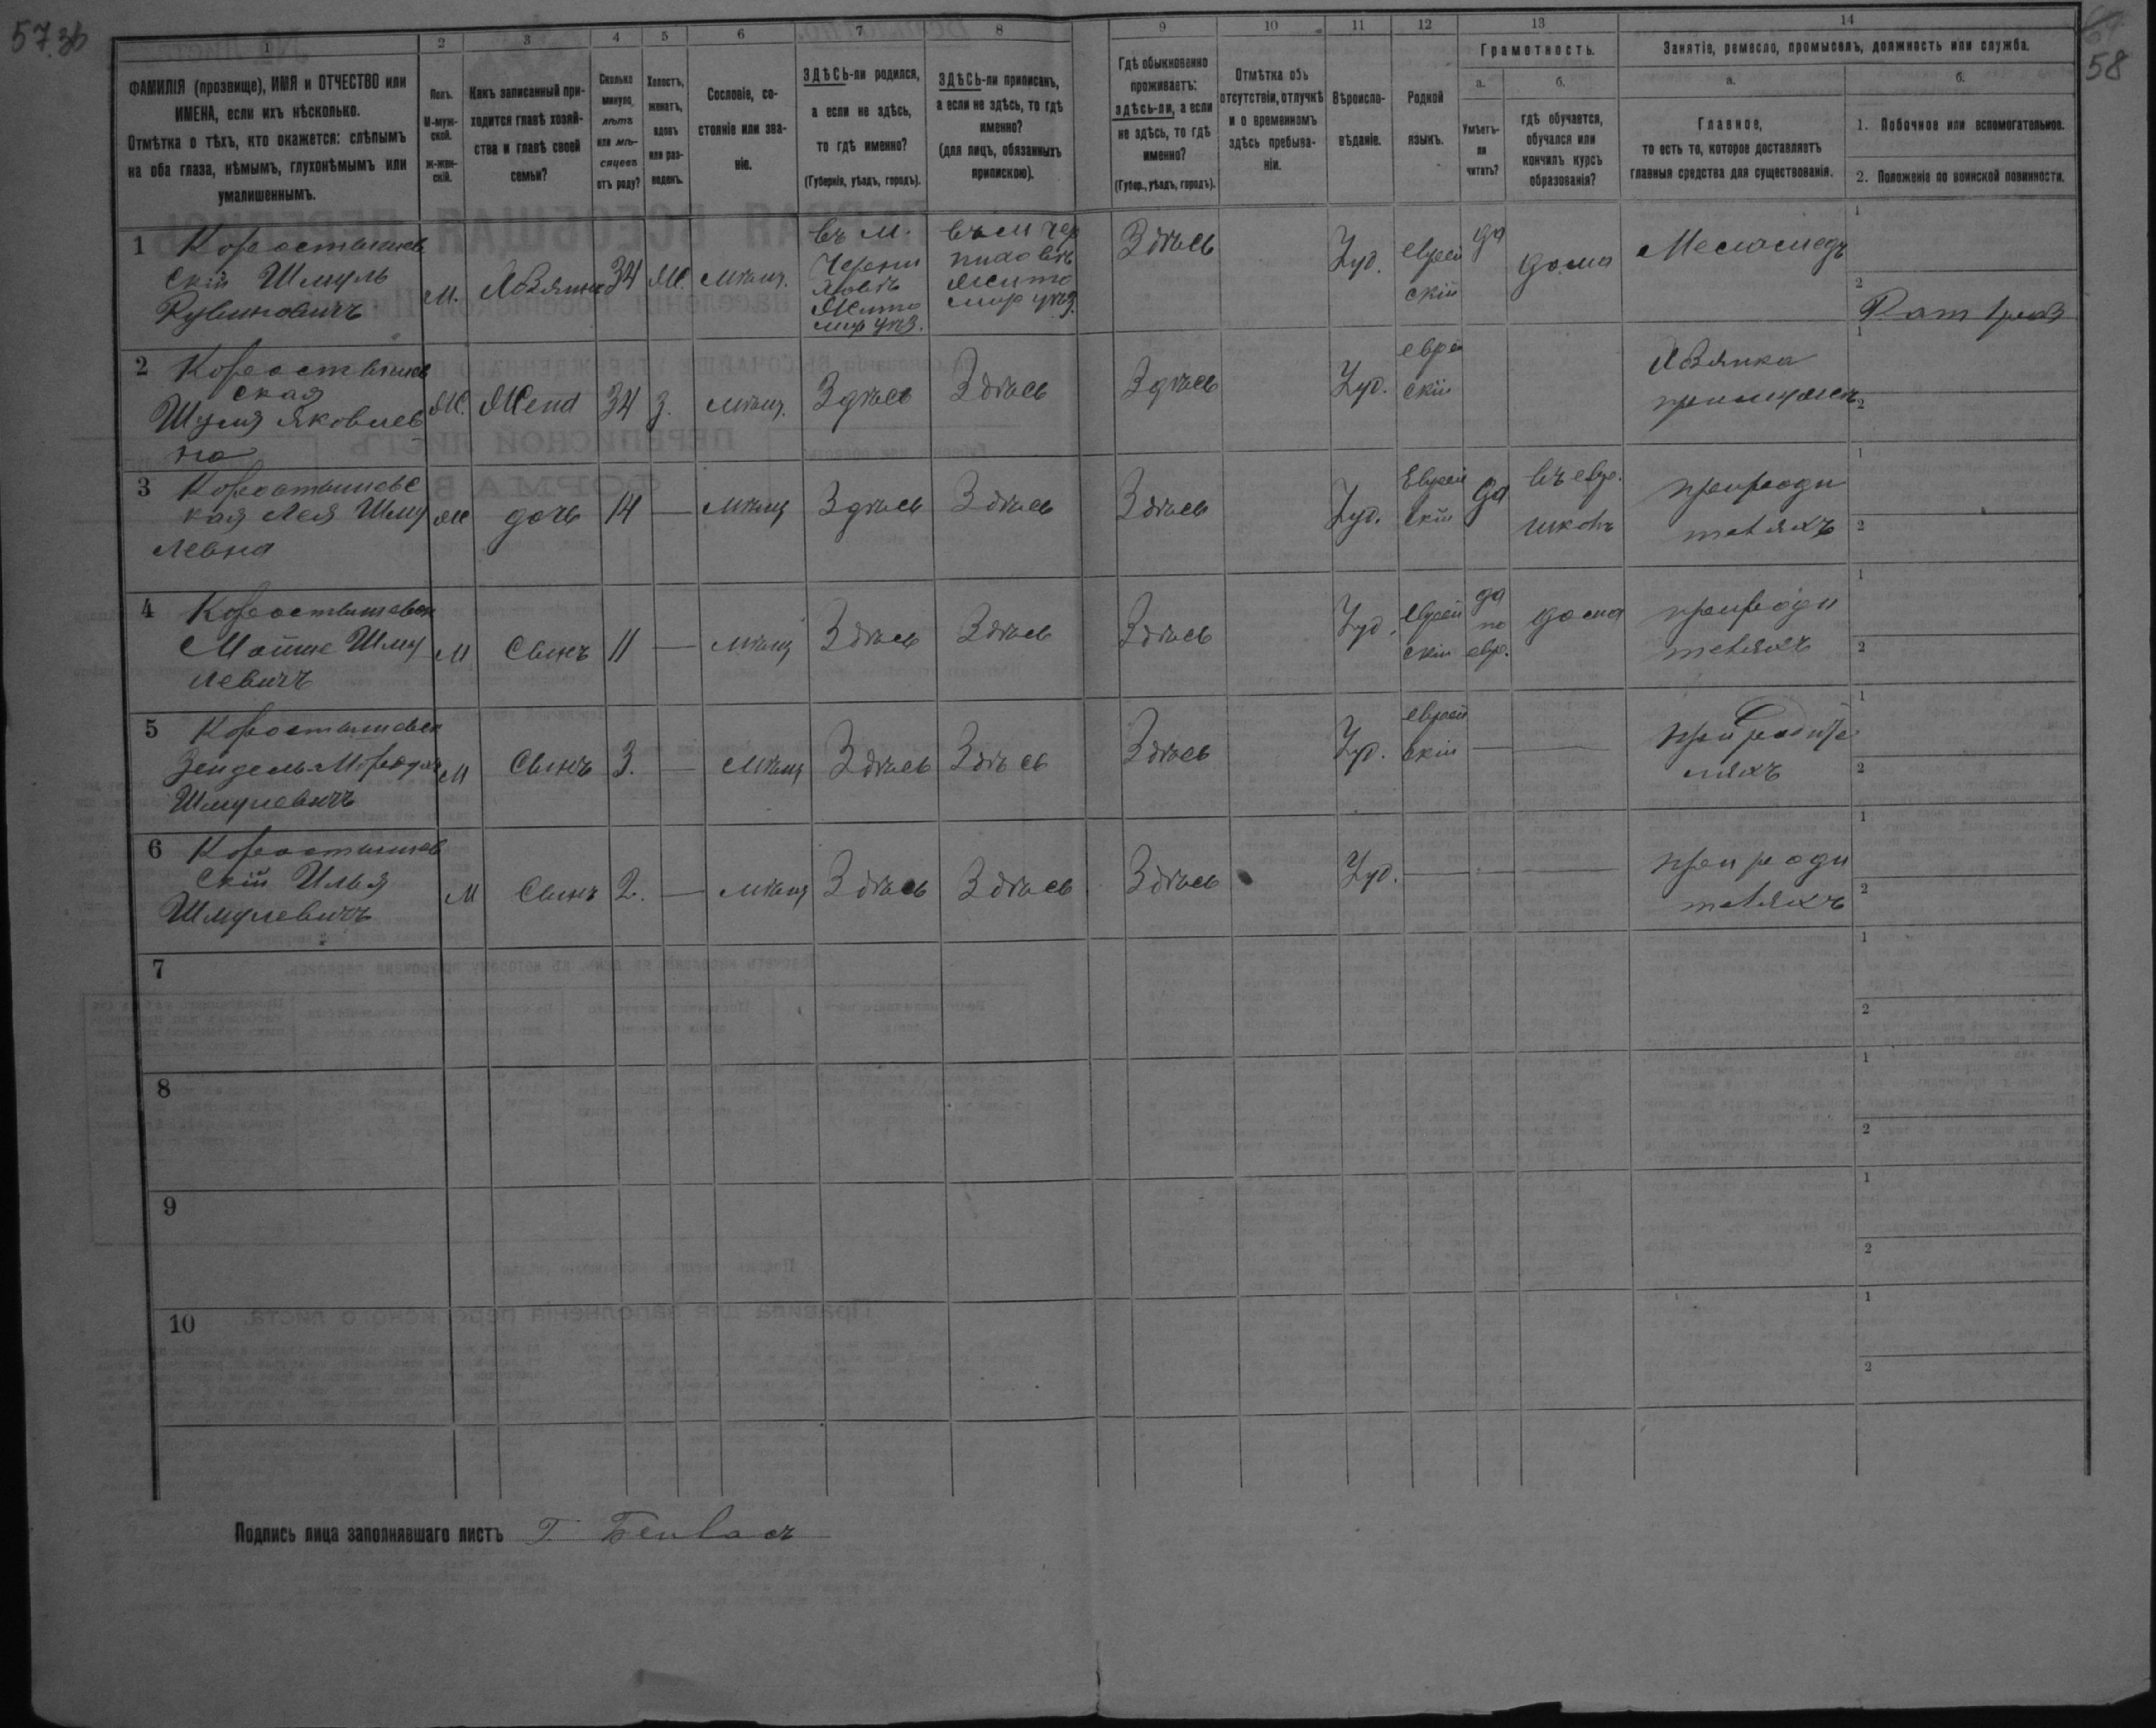 57.зв
58
1
2
3
4
5
6
7
8
9
10
11
12
13
14
ФАМИЛІЯ (прозвище), ИМЯ и ОТЧЕСТВО или
ИМЕНА, если ихъ нѣсколько.
Отмѣтка о тѣхъ, кто окажется: слѣпымъ
на оба глаза, нѣмымъ, глухонѣмымъ или
умалишеннымъ.
Полъ.
М-муж-
ской.
ж-жен-
скій.
Какъ записанный при-
ходится главѣ хозяй-
ства и главѣ своей
семьи?
Сколько
минуло
лѣтъ
или мѣ-
сяцевъ
отъ роду?
Холостъ,
женатъ,
вдовъ
или раз-
веденъ.
Сословіе, со-
стояніе или зва-
ніе.
ЗДѢСЬ-ли родился,
а если не здѣсь,
то гдѣ именно?
(Губернія, уѣздъ, городъ).
ЗДѢСЬ-ли приписанъ,
а если не здѣсь, то гдѣ
именно?
(для лицъ, обязанныхъ
припискою).
Гдѣ обыкновенно
проживаетъ:
здѣсь-ли, а если
не здѣсь, то гдѣ
именно?
(Губер., уѣздъ, городъ).
Отмѣтка объ
отсутствіи, отлучкѣ
и о временномъ
здѣсь пребыва-
ніи.
Вѣроиспо-
вѣданіе.
Родной
языкъ.
Грамотность.
а.
Умѣетъ-
ли
читать?
б.
гдѣ обучается,
обучался или
кончилъ курсъ
образованія?
Занятіе, ремесло, промыселъ, должность или служба.
а.
Главное,
то есть то, которое доставляетъ
главныя средства для существованія.
б.
1. Побочное или вспомогательное.
2. Положеніе по воинской повинности.
1 Коростышев
скій Шмуль
Рувиновичъ
М.
34
Ж
мѣщ.
въ м.
въ м Чер
Жито
мир уѣз.
Здѣсь
Іуд.
еврей
скій
да
дома
1
2
2 Коростышев
ская
Яковлев
на
Ж.
Жена
34
З.
мѣщ.
Здѣсь
Здѣсь
Здѣсь
Іуд.
еврей
скій
1
2
3 Коростышевс
кая Лея Шму
левна
Ж
дочь
14
—
мѣщ
Здѣсь
Здѣсь
Здѣсь
Іуд.
Еврей
скій
да
въ евр.
школѣ
при роди
теляхъ
1
2
4 Коростышевск
Мойше Шму
левичъ
М
Сынъ
11
—
мѣщ
Здѣсь
Здѣсь
Здѣсь
Іуд.
еврей
скій
да
по
евр.
дома
при роди
теляхъ
1
2
5 Коростышевск
Зендель
Шмулевичъ
М
Сынъ
3.
—
мѣщ
Здѣсь
Здѣсь
Здѣсь
Іуд.
еврей
скій
—
—
при родите
ляхъ
1
2
6 Коростышев
скій Илья
Шмулевичъ
М
Сынъ
2.
—
мѣщ
Здѣсь
Здѣсь
Здѣсь
Іуд.
—
—
—
при роди
теляхъ
1
2
7
1
2
8
1
2
9
1
2
10
1
2
Подпись лица заполнявшаго листъ Г.